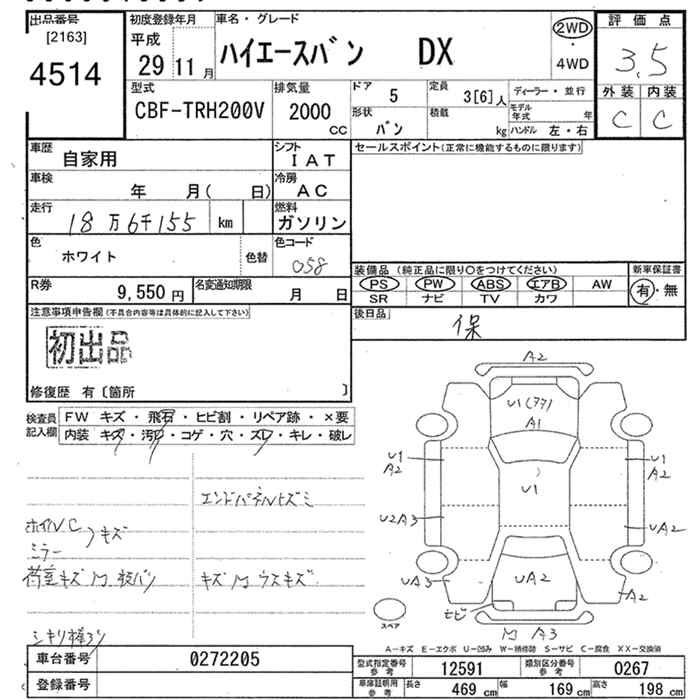 出品番号
[2163]
4514
初度登録年月
平成
29 11 月
車名・グレード
ハイエースバン DX
2WD
・
4WD
評価点
3.5
外装 内装
C C
型式
CBF-TRH200V
排気量
2000
CC
ドア 5
形状 バン
定員 3[6] 人
積載 kg
ディーラー・並行
モデル年式 年
ハンドル 左・右
車歴
自家用
シフト
IAT
車検
年 月( 日)
冷房
AC
走行
18万6千155 km
燃料
ガソリン
色
ホワイト
色替
色コード
058
R券
9,550 円
名変通知期限
月 日
セールスポイント(正常に機能するものに限ります)
装備品 (純正品に限り○をつけてください)
PS PW ABS エアB AW
SR ナビ TV カワ
新車保証書
有・無
後日品
保
注意事項申告欄(不具合内容等は具体的に記入して下さい)
初出品
修復歴 有〔箇所 〕
検査員記入欄
FW キズ・飛石・ヒビ割・リペア跡・×要
内装 キズ・汚レ・コゲ・穴・スレ・キレ・破レ
エンドパネルヒズミ
ホイルC
ミラー
キズ
荷室キズ
キズ
ウスキズ
シキリ棒アリ
A2
U1(アア)
A1
U1
A2
U1
U1
A2
U2A3
UA2
UA3
UA2
A2
ヒビ
A3
スペア
A-キズ E-エクボ U-凹み W-補修跡 S-サビ C-腐食 XX-交換済
車台番号 0272205
登録番号
型式指定番号参考 12591
類別区分番号参考 0267
車庫証明用参考 長さ 469 cm 幅 169 cm 高さ 198 cm